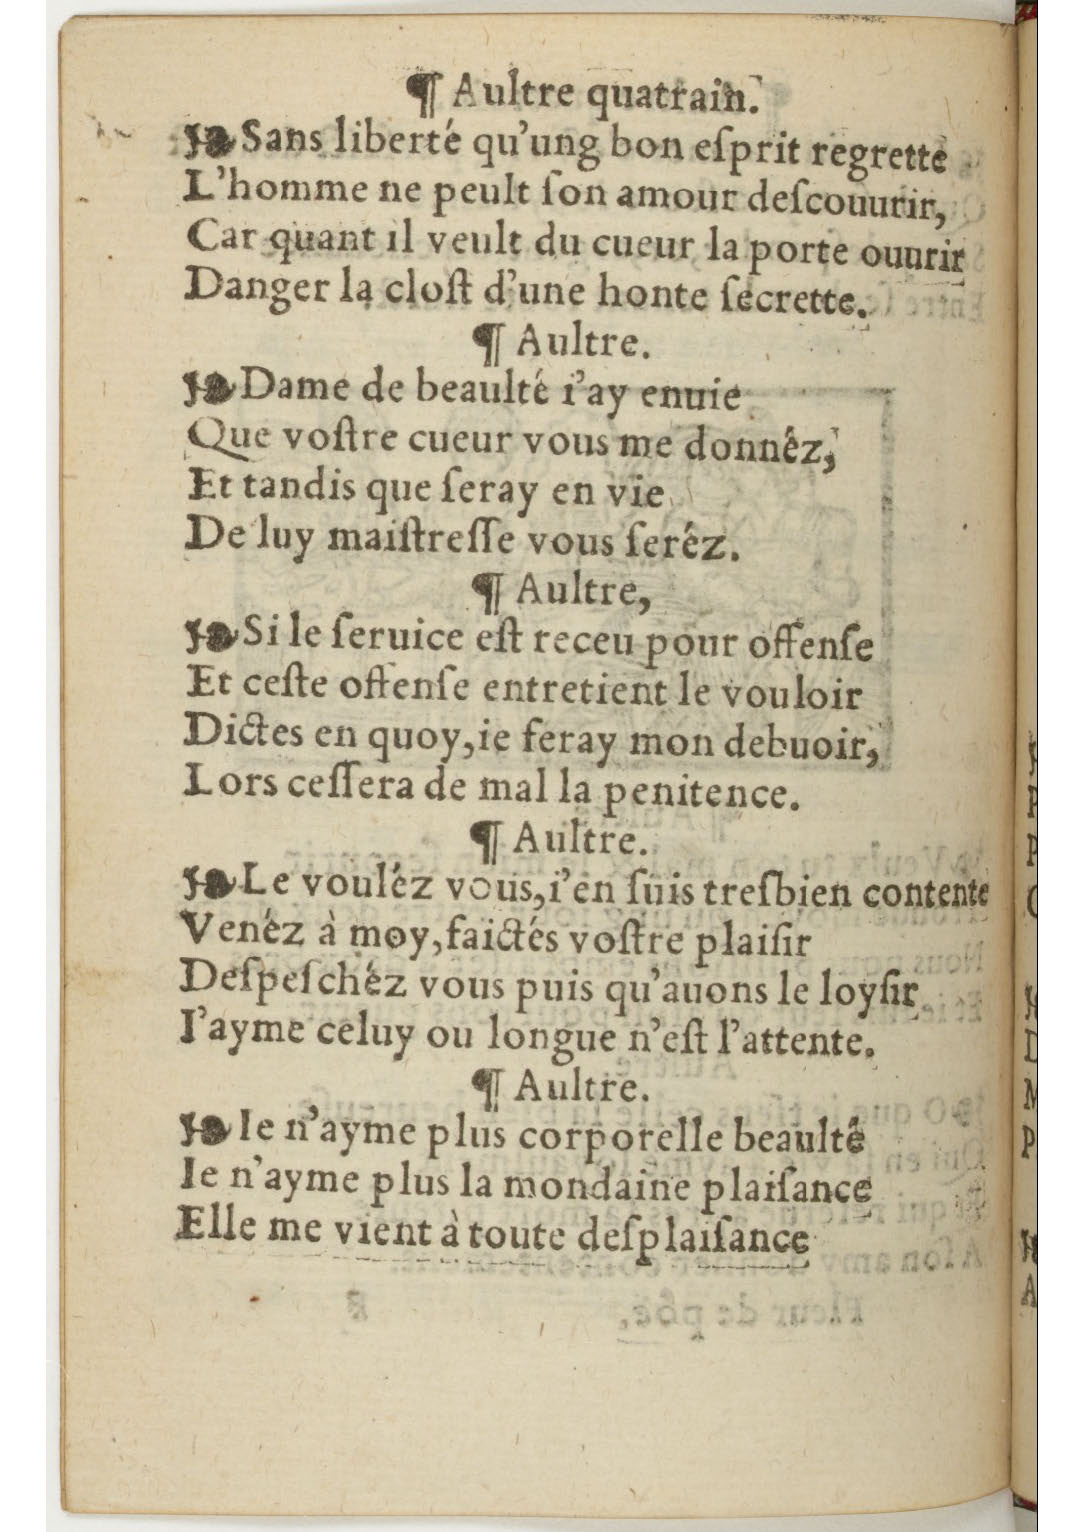 ¶ Aultre quatrain.
❧ Sans liberté qu'ung bon eſprit regrette
L'homme ne peult ſon amour deſcouurir,
Car quant il veult du cueur la porte ouurir
Danger la cloſt d'une honte ſecrette.
¶ Aultre.
❧ Dame de beaulté i'ay enuie
Que voſtre cueur vous me donnéz,
Et tandis que ſeray en vie
De luy maiſtreſſe vous ſeréz.
¶ Aultre,
❧ Si le ſeruice eſt receu pour offenſe
Et ceſte offenſe entretient le vouloir
Dictes en quoy, ie feray mon debuoir,
Lors ceſſera de mal la penitence.
¶ Aultre.
❧ Le vouléz vous, i'en ſuis treſbien contente
Venéz à moy, faictés voſtre plaiſir
Deſpeſchéz vous puis qu'auons le loyſir
I'ayme celuy ou longue n'eſt l'attente.
¶ Aultre.
❧ Ie n'ayme plus corporelle beaulté
Ie n'ayme plus la mondaine plaiſance
Elle me vient à toute deſplaiſance